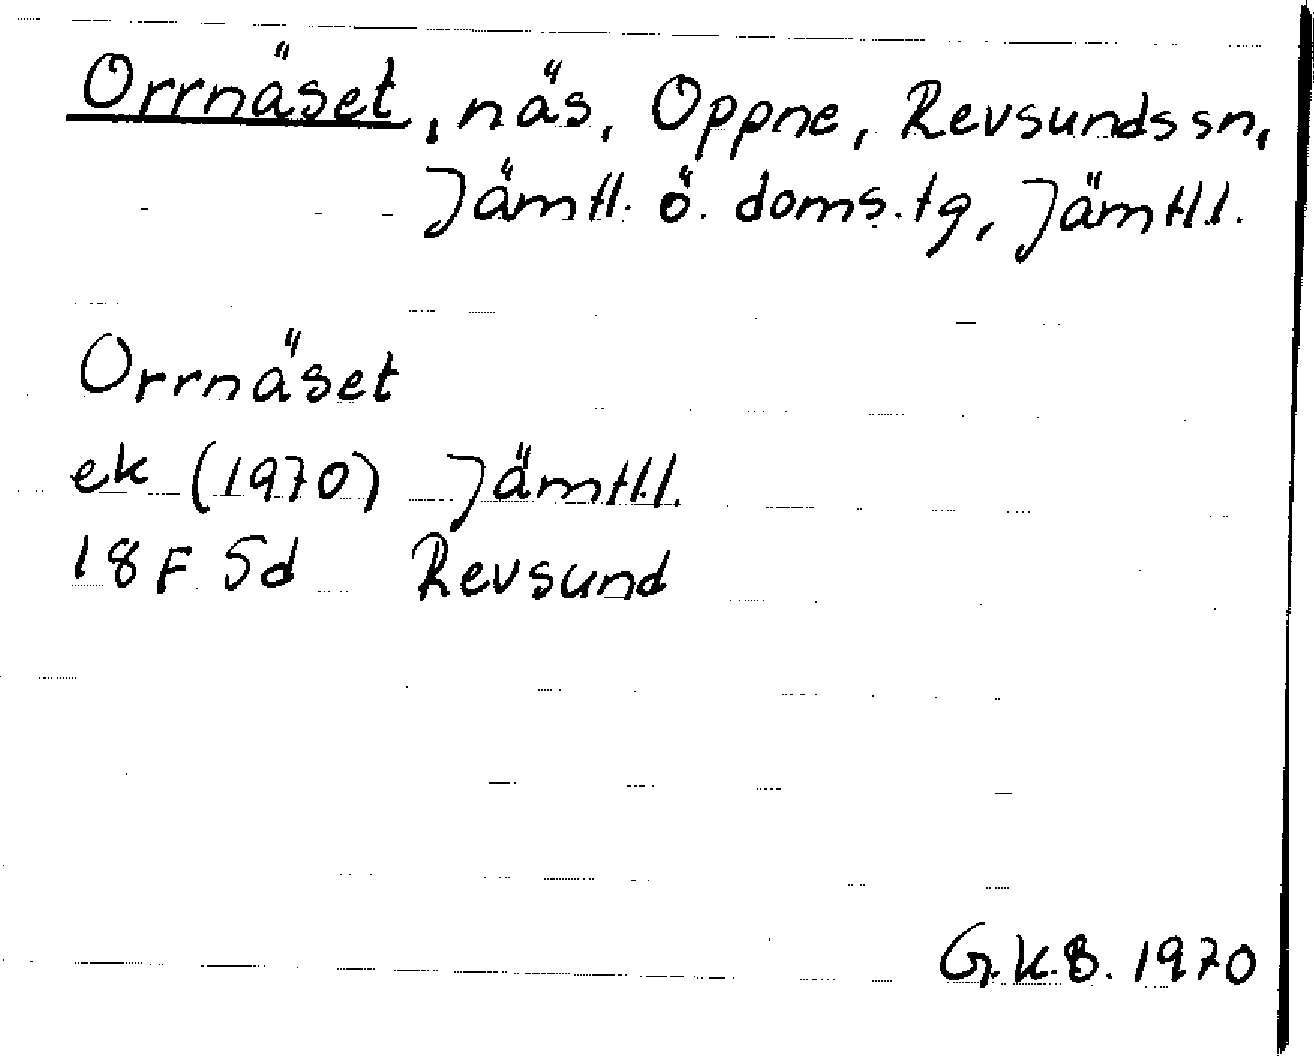 Orrnäset, näs, Oppne, Revsunds sn,
Jämtl. ö. doms.tg, Jämtl.l.
Orrnäset
ek (1970) Jämtl.l.
18 F 5d Revsund
G.K.B. 1970